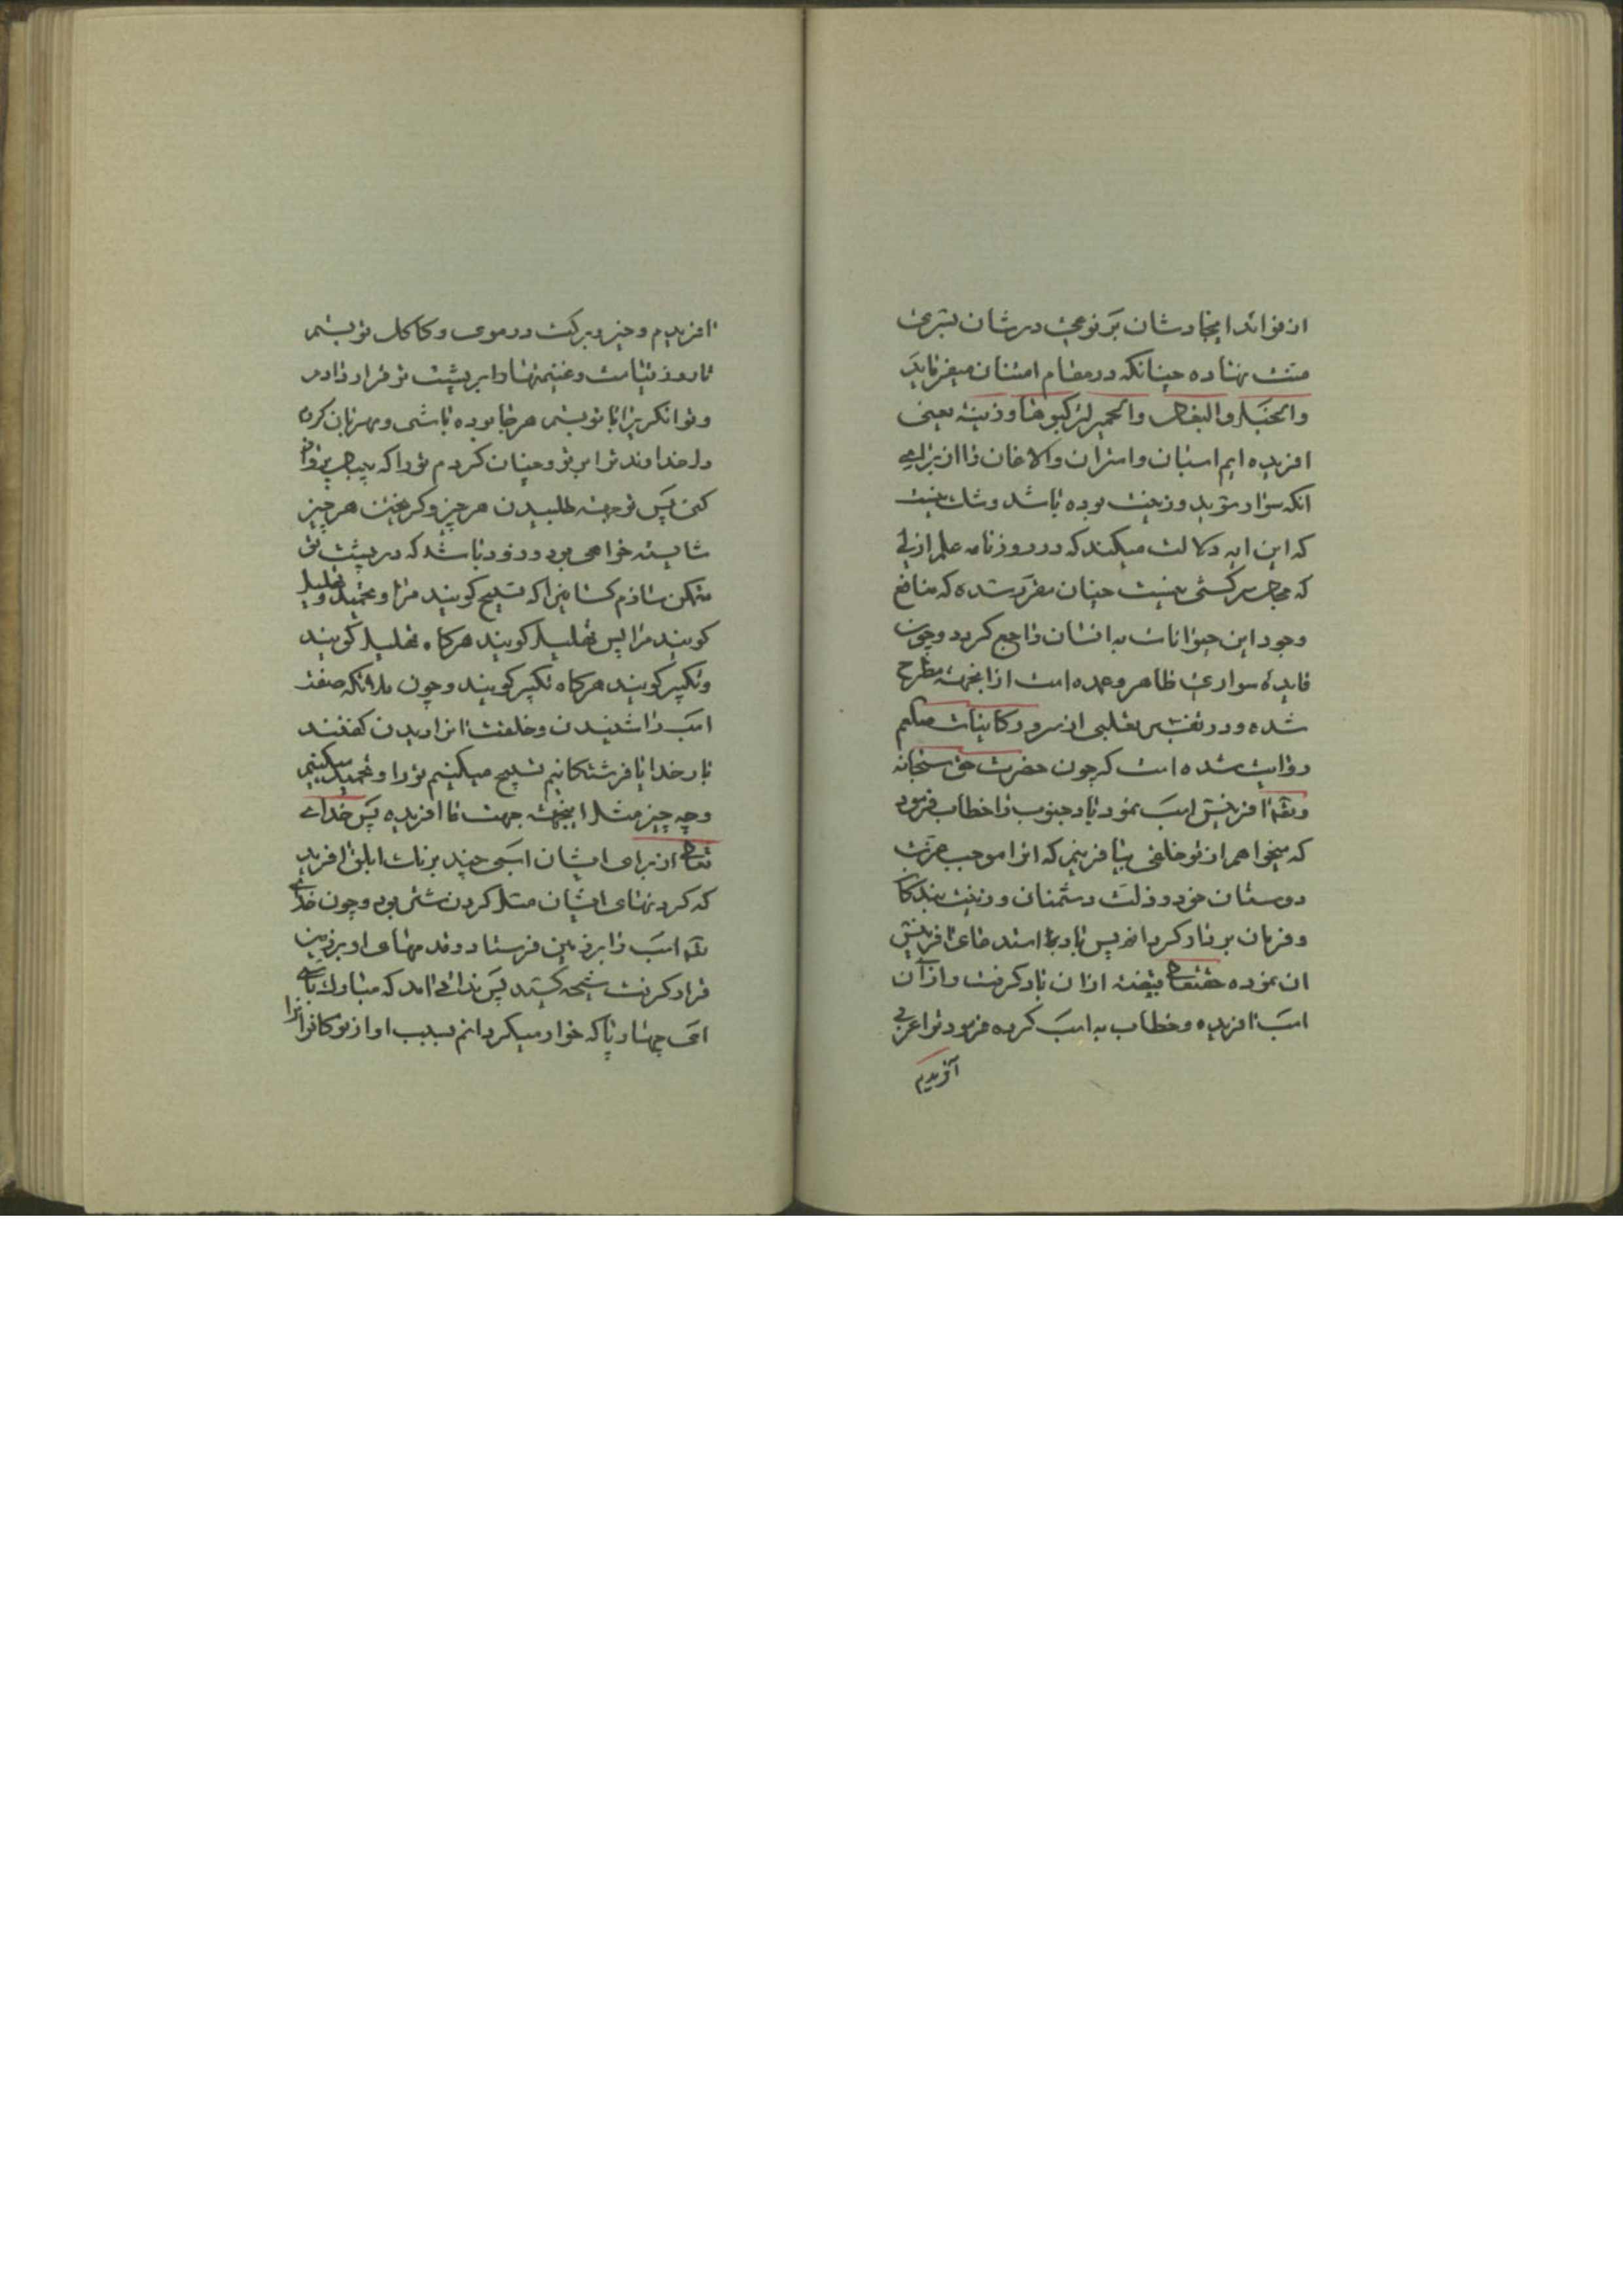 از فوائد ایجادشان بر نوعی در شان بشری
منت نهاده چنانکه در مقام امتنان میفرماید
والخیل والبغال والحمیر لترکبوها وزینة یعنی
افریده ایم اسبان و استران و الاغان را از برای
انکه سوار شوید و زینت بوده باشد و شک نیست
که این ایه دلالت میکند که در روزنامه علم ازلی
که مجال سرکشی نیست چنان مقرر شده که منافع
وجود این حیوانات به انسان راجع کردد و چون
فایده سواری ظاهر و عمده است از اینجهته مطرح
شده و در تفسیر ثعلبی از سرور کاینات صلعم
روایت شده است که چون حضرت حق سبحانه
وتعه افرینش اسب نمود باد جنوب را خطاب فرمود
که میخواهم از تو خلقی بیافرینم که انرا موجب عزت
دوستان خود و ذلت دشمنان و زینت بندکان
و فرمان بردار کردانم پس باد بنا استدعای افرینش
ان نموده حقتعالی قبضه از ان باد کرفت و از آن
اسب افریده و خطاب به اسب کرده فرمود ترا عربی
آفریدیم
افریدیم و خیر و برکت در موی و کاکل تو بستم
تا روز قیامت و غنیمتها را بر پشت تو قرار دادم
و توانکریرا با تو بستم هر جا بوده باشی و مهربان کردم
دل خداوند ترا بر تو و چنان کردم تو را که بیبال پرواز
کنی پس تو جهته طلبیدن هر چیز و کریختن هر چیز
شایسته خواهی بود و زود باشد که در پشت تو
متمکن سازم کسانیرا که تسبیح کویند مرا و تحمید و تهلیل
کویند مرا پس تهلیل کویند هرکاه تهلیل کویند
و تکبیر کویند هرکاه تکبیر کویند و چون ملائکه صفت
اسب را شنیدن و خلقت انرا دیدن کفتند
بار خدایا فرشتکانیم تسبیح میکنیم تو را و تحمید میکنیم
و چه چیز مثل اینجهته جهت ما افریده پس خدای
تعالی از برای ایشان اسبی چند برنک ابلق افرید
که کردنهای ایشان مثل کردن شتر بود و چون خدای
تعه اسب را بر زمین فرستاد و قدمهای او بر زمین
قرار کرفت شیحه کشید پس ندائی امد که مبارک باشی
ای چهارپا که خوار میکردانم بسبب اواز تو کافرانرا